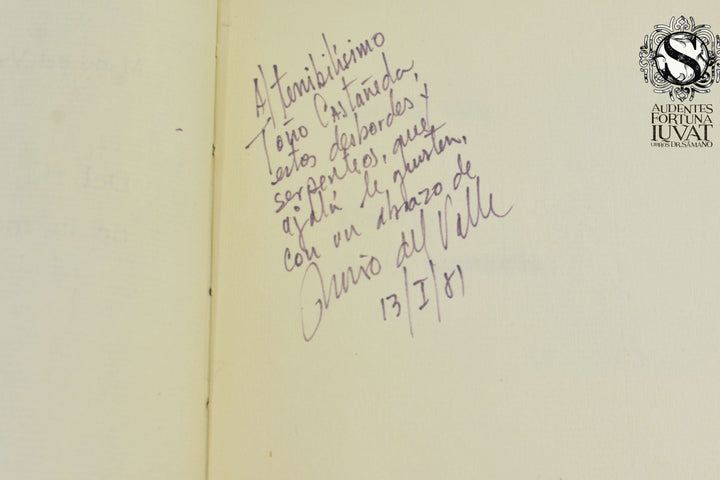 Al terribilísimo
Toño Castañeda,
estos desbordes y
serpenteos, que
ojalá le gusten,
con un abrazo de
del Valle
13/I/81
S
AUDENTES
FORTUNA
IUVAT
LIBROS DR. SÁMANO